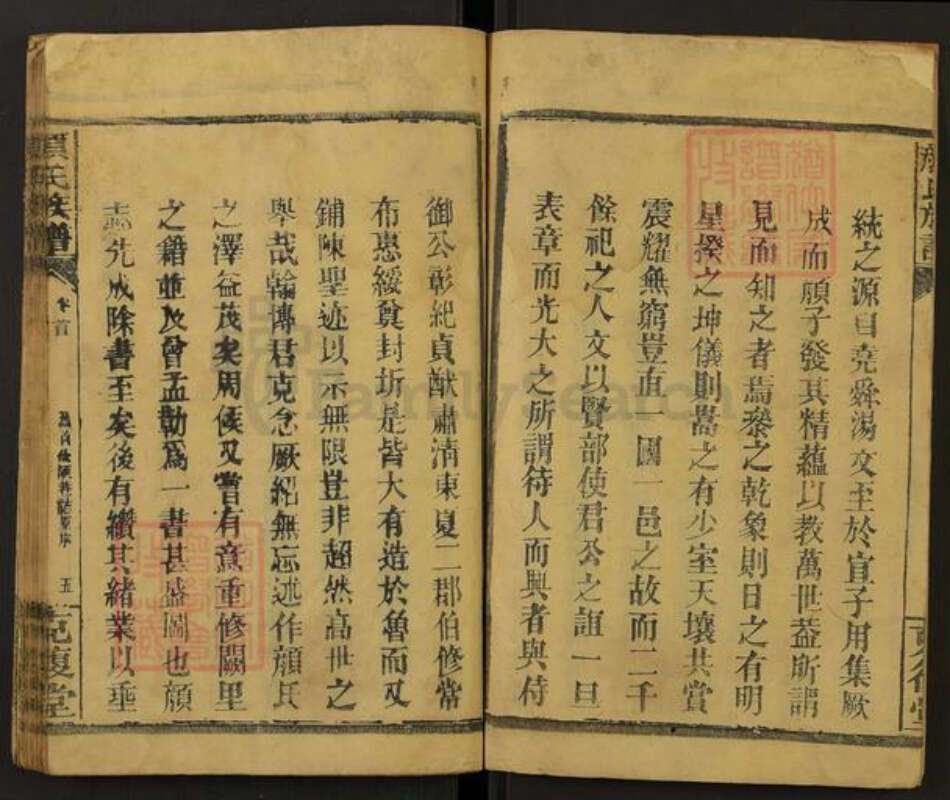 統之源自堯舜湯文至於宣子用集厥
成而顔子發其精蘊以教萬世葢所謂
見而知之者焉叅之乾象則日之有明
星揆之坤儀則嵩之有少室天壤共賞
震耀無窮豈直一國一邑之故而二千
餘祀之人文以賢部使君公之誼一旦
表章而光大之所謂待人而興者與侍
御公彰紀貞猷肅清東夏二郡伯修常
布惠綏奠封圻是皆大有造於魯而又
鋪陳聖迹以示無限豈非超然高世之
舉哉翰博君克念厥紀無忘述作顔氏
之澤益茂矣周侯又嘗有意重修闕里
之籍並及曾孟勒為一書甚盛圖也顔
志先成除書至矣後有纘其緒業以垂
氏族譜
卷首
五
克復堂
FamilySearch